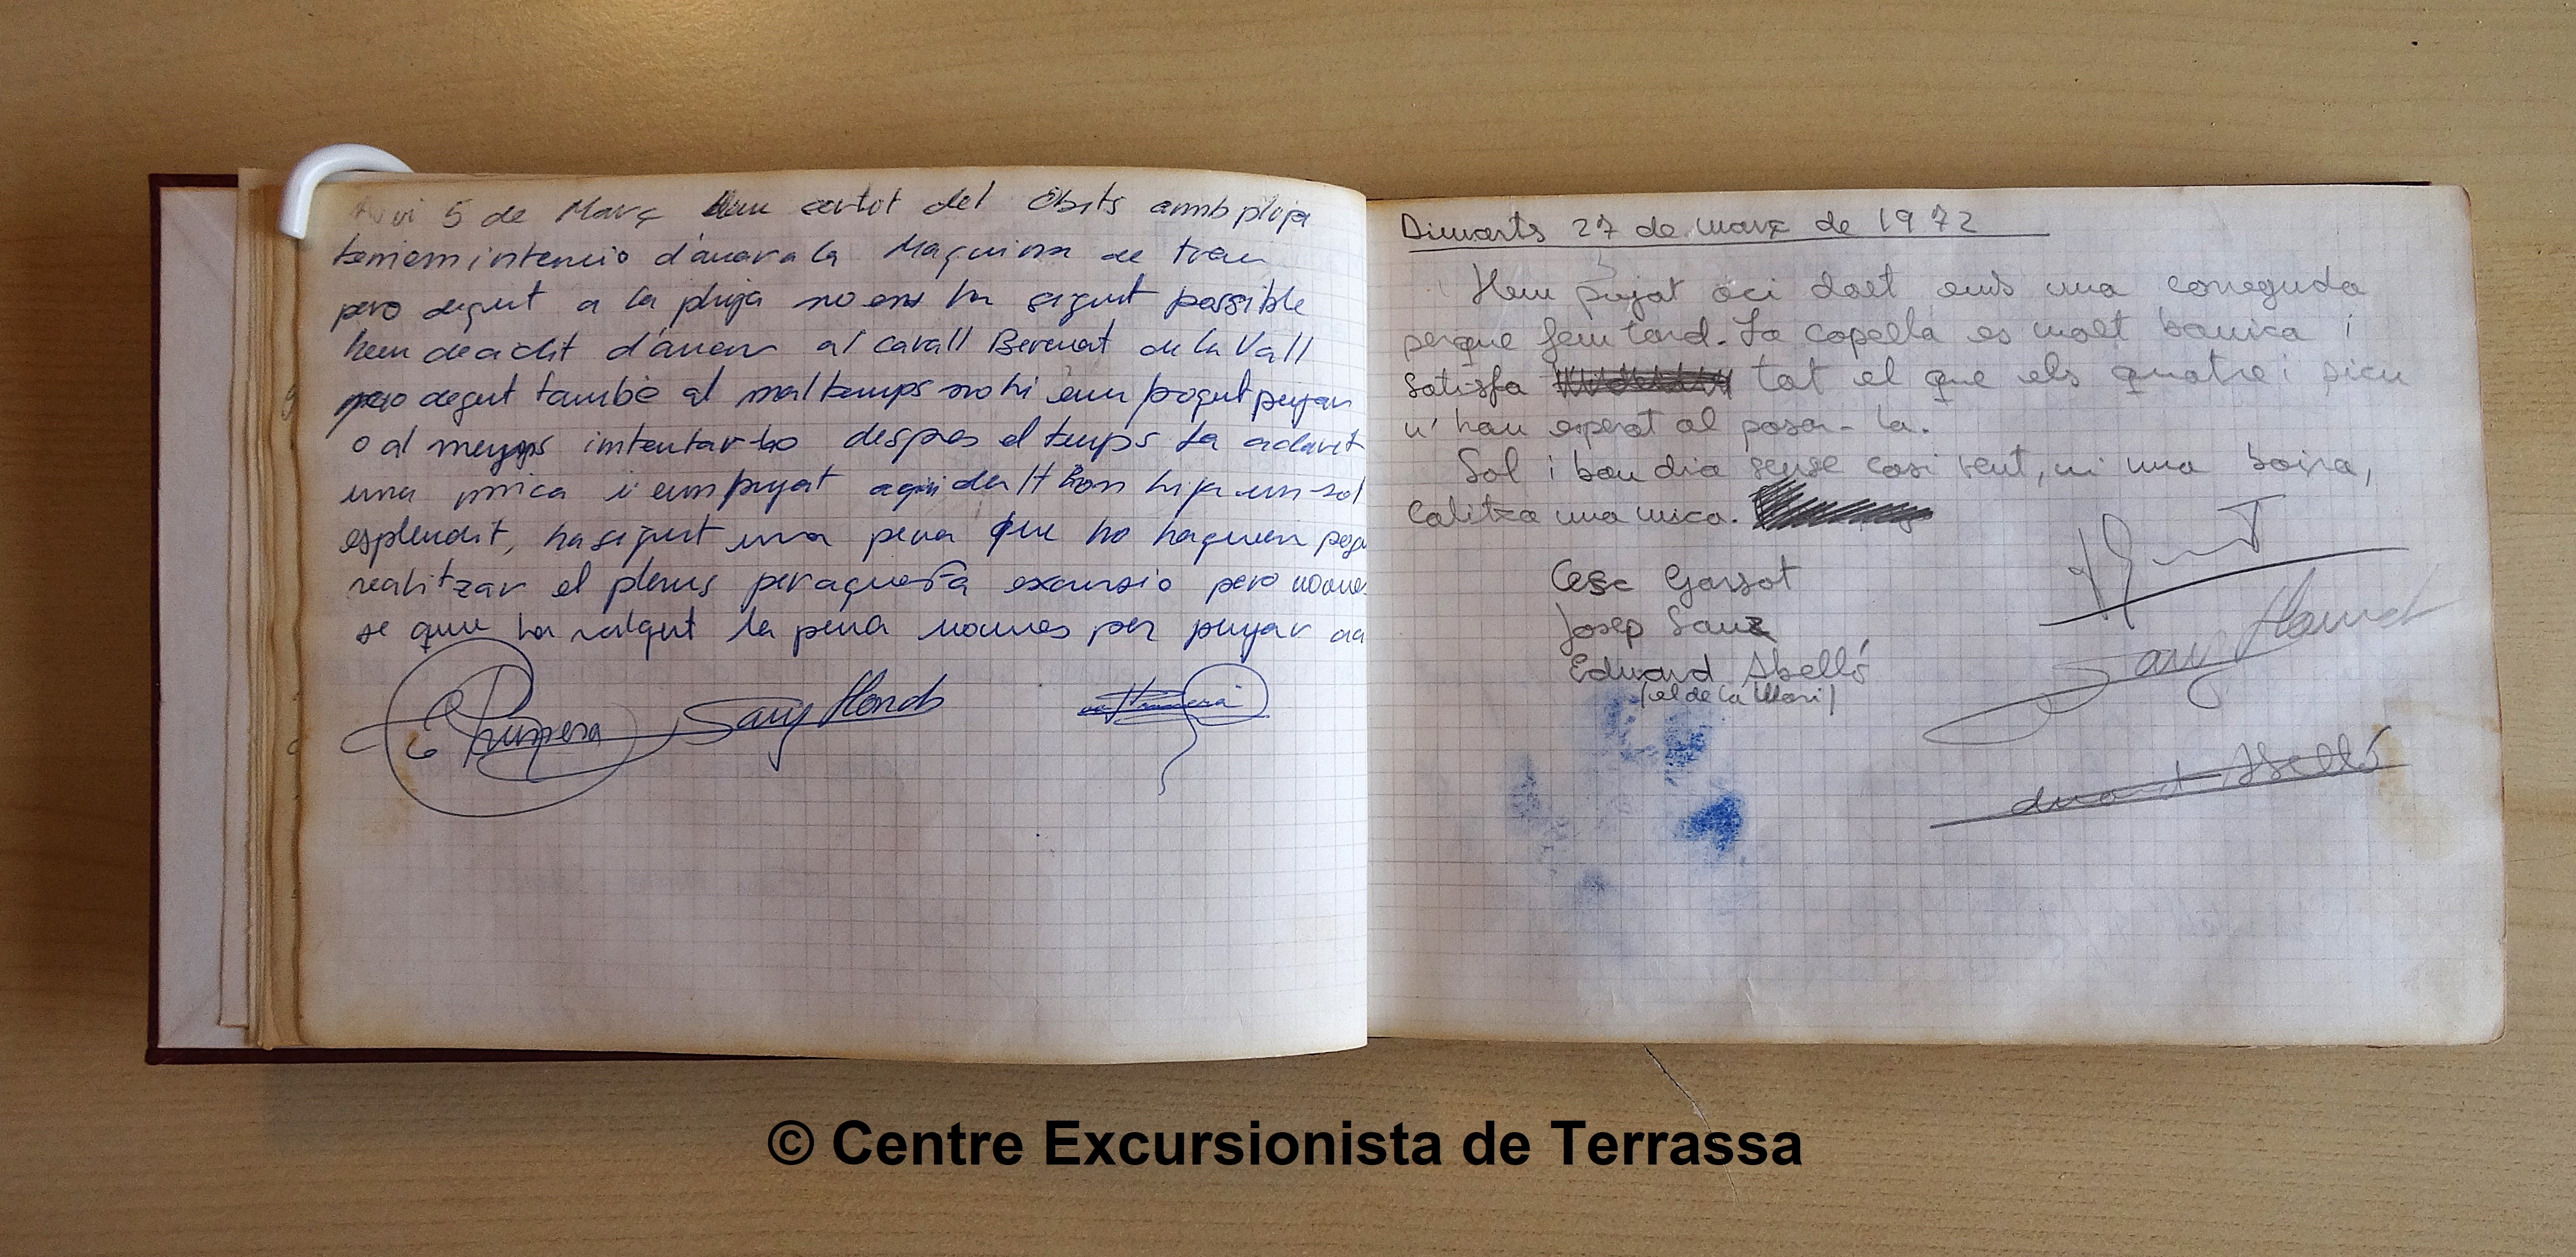 Avui 5 de Març hem sortot del Obits amb pluja
teniem intencio d'anar a la Maquina de tren
pero degut a la pluja no ens ha sigut possible
hem decidit d'anar al cavall Bernat de la Vall
pero degut també al mal temps no hi em pogut pujar
o al menys intentar-ho despres el temps ha aclarit
una mica i em pujat aqui dalt hon hi ja un sol
esplendit, ha sigut una pena que no haguem pogu
realitzar el plans per aquesta excursio pero nomes
se que ha valgut la pena nomes per pujar
Prunera Sanz Homds
Dimarts 27 de març de 1972
Hem pujat aci dalt amb una correguda
perque fem tard. La capella es molt bonica i
satisfa tot el que els quatre i picu
n'han esperat al posar-la.
Sol i bon dia sense casi vent, ni una boira,
Calitxa una mica.
Cesc Garsot
Josep Sanz
Eduard Abelló
(el de la Mari)
Sanz Homd
duard Abelló
© Centre Excursionista de Terrassa